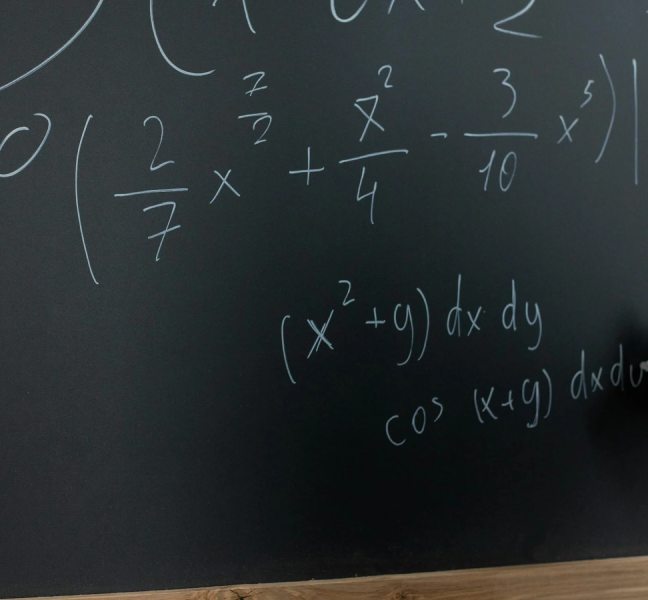 0 ( 2/7 x^7/2 + x^2/4 - 3/10 x^5 ) |
(x^2 + y) dx dy
cos (x+y) dx dy